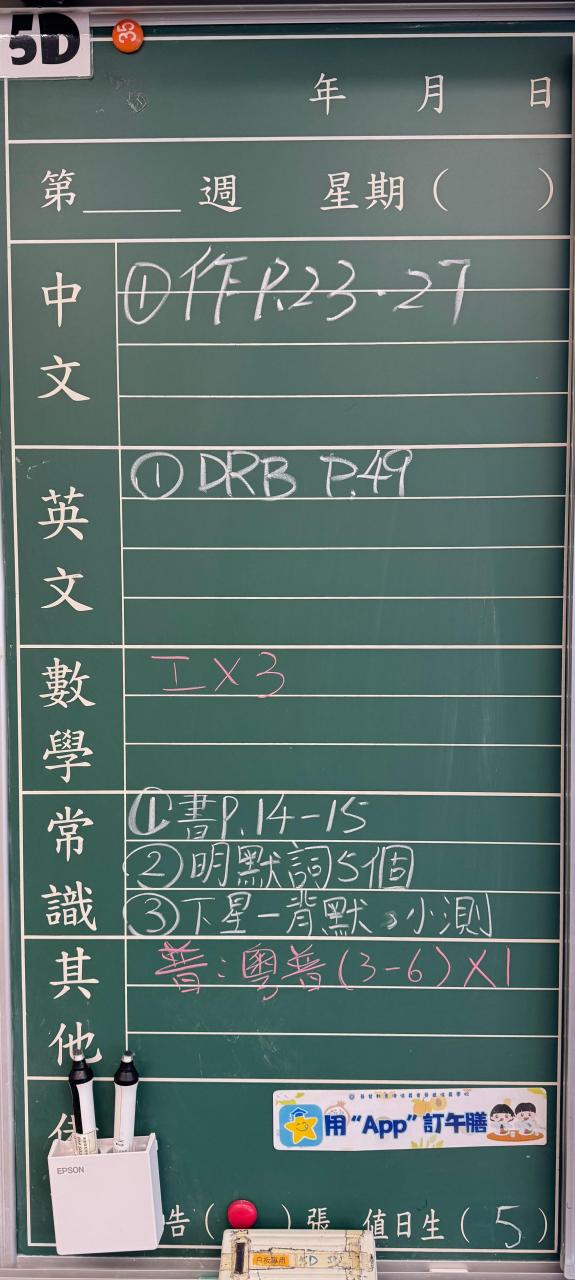 5D
35
年 月 日
第 週 星期( )
中文
①作P.23-27
英文
① DRB P.49
數學
工×3
常識
①書P.14-15
②明默詞5個
③下星一背默、小測
其他
普:粵普(3-6)×1
用“App”訂午膳
EPSON
告( )張 值日生(5)